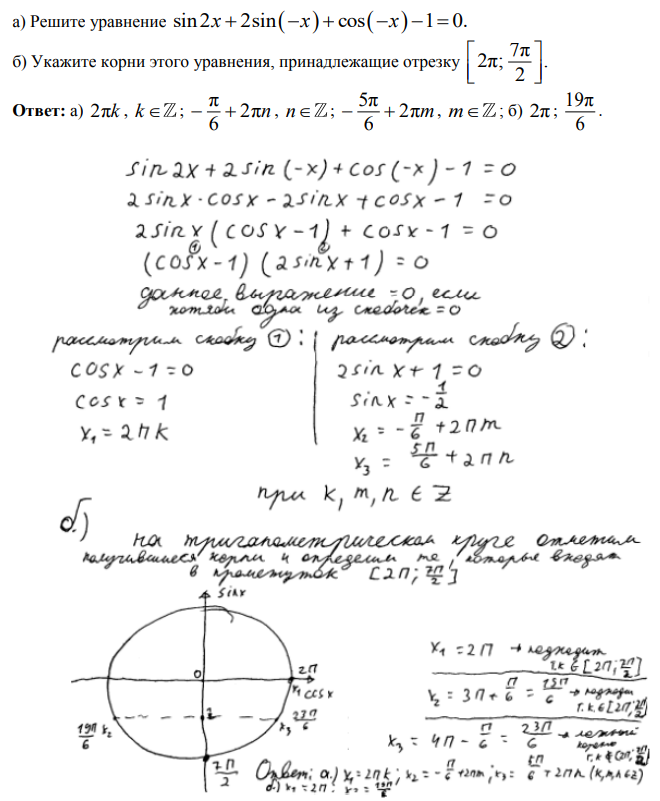 а) Решите уравнение sin 2x + 2sin(−x) + cos(−x) − 1 = 0.
б) Укажите корни этого уравнения, принадлежащие отрезку [2π; 7π/2].
Ответ: а) 2πk, k ∈ ℤ; −π/6 + 2πn, n ∈ ℤ; −5π/6 + 2πm, m ∈ ℤ; б) 2π; 19π/6.
sin 2x + 2 sin (-x) + cos (-x) - 1 = 0
2 sin x · cos x - 2 sin x + cos x - 1 = 0
2 sin x (cos x - 1) + cos x - 1 = 0
① ②
(cos x - 1) (2 sin x + 1) = 0
данное выражение = 0, если
хотябы одна из скобочек = 0
рассмотрим скобку ①:
cos x - 1 = 0
cos x = 1
x₁ = 2πk
рассмотрим скобку ②:
2 sin x + 1 = 0
sin x = -1/2
x₂ = -π/6 + 2πm
x₃ = 5π/6 + 2πn
при k, m, n ∈ Z
б.)
на тригапометрическом круге отметим
получившиеся корни и определим те, которые входят
в промежуток [2π; 7π/2]
sin x
0
2π
x₁ cos x
19π/6 x₂
x₃ 23π/6
7π/2
x₁ = 2π → подходит
т.к ∈ [2π; 7π/2]
x₂ = 3π + π/6 = → подходи
т.к. ∈ [2π; 7π/2]
x₃ = 4π - π/6 = 23π/6 →
т.к ∉ [2π; 7π/2]
Ответ: а.) x₁ = 2πk; x₂ = -π/6 + 2πm; x₃ = 5π/6 + 2πn (k, m, n ∈ Z)
б.) x₁ = 2π; x₂ = 19π/6